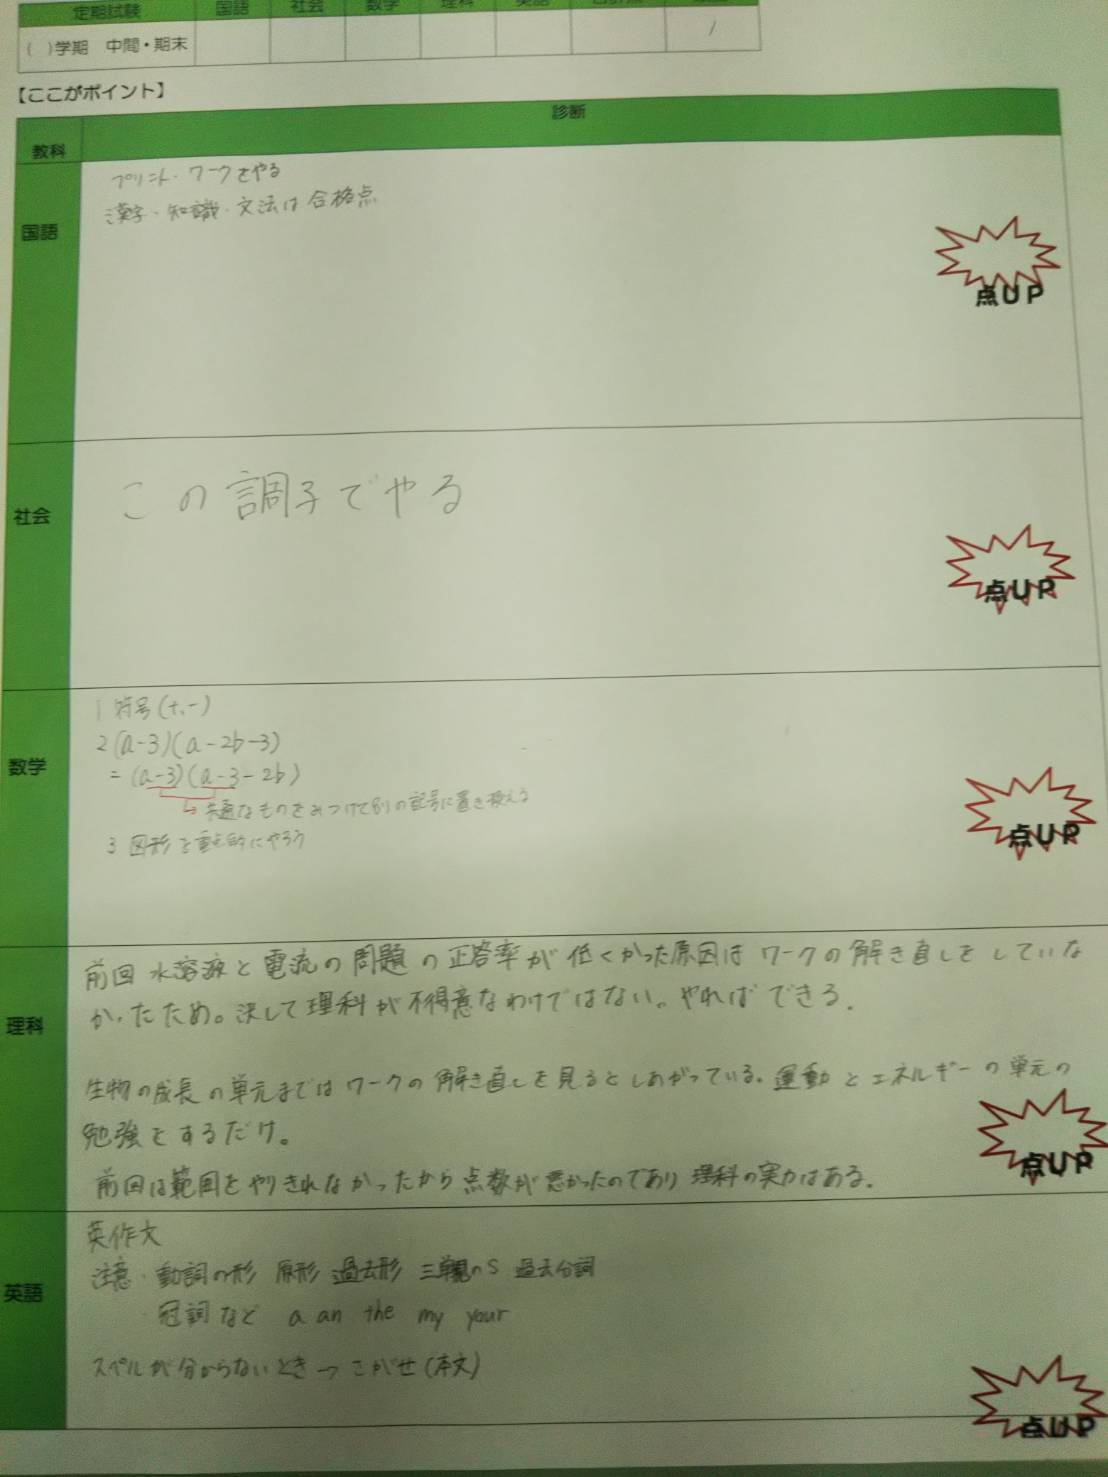 定期試験 国語 社会 数学 理科 英語
( )学期 中間・期末 /
【ここがポイント】
教科 診断
国語
プリント・ワークをやる
漢字・知識・文法は合格点
点UP
社会
この調子でやる
点UP
数学
1 符号(+,-)
2(a-3)(a-2b-3)
=(a-3)(a-3-2b)
↳共通なものをみつけて別の記号に置き換える
3 図形を重点的にやろう
点UP
理科
前回 水溶液と電流の問題の正答率が低くかった原因はワークの解き直しをしていな
かったため。決して理科が不得意なわけではない。やればできる.
生物の成長の単元まではワークの解き直しを見るとしあがっている.運動とエネルギーの単元の
勉強をするだけ。
前回は範囲をやりきれなかったから点数が悪かったのであり理科の実力はある.
点UP
英語
英作文
注意・動詞の形 原形 過去形 三単現のS 過去分詞
・冠詞など a an the my your
スペルが分からないとき→さがせ(本文)
点UP